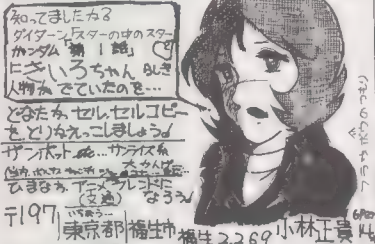 知ってましたか?
ダイターン「スターの中のスター
ガンダム「第1話」に
「きいろちゃん」らしき
人物がでていたのを…
どなたか、セル、セルコピー
をとりかえっこしましょう
ザンボット etc… サンライズ
ひまなかた、アニメフレンドに
(文通) なろう
〒197
東京都 福生市 福生2269 小林正貴
フラウ のつもり